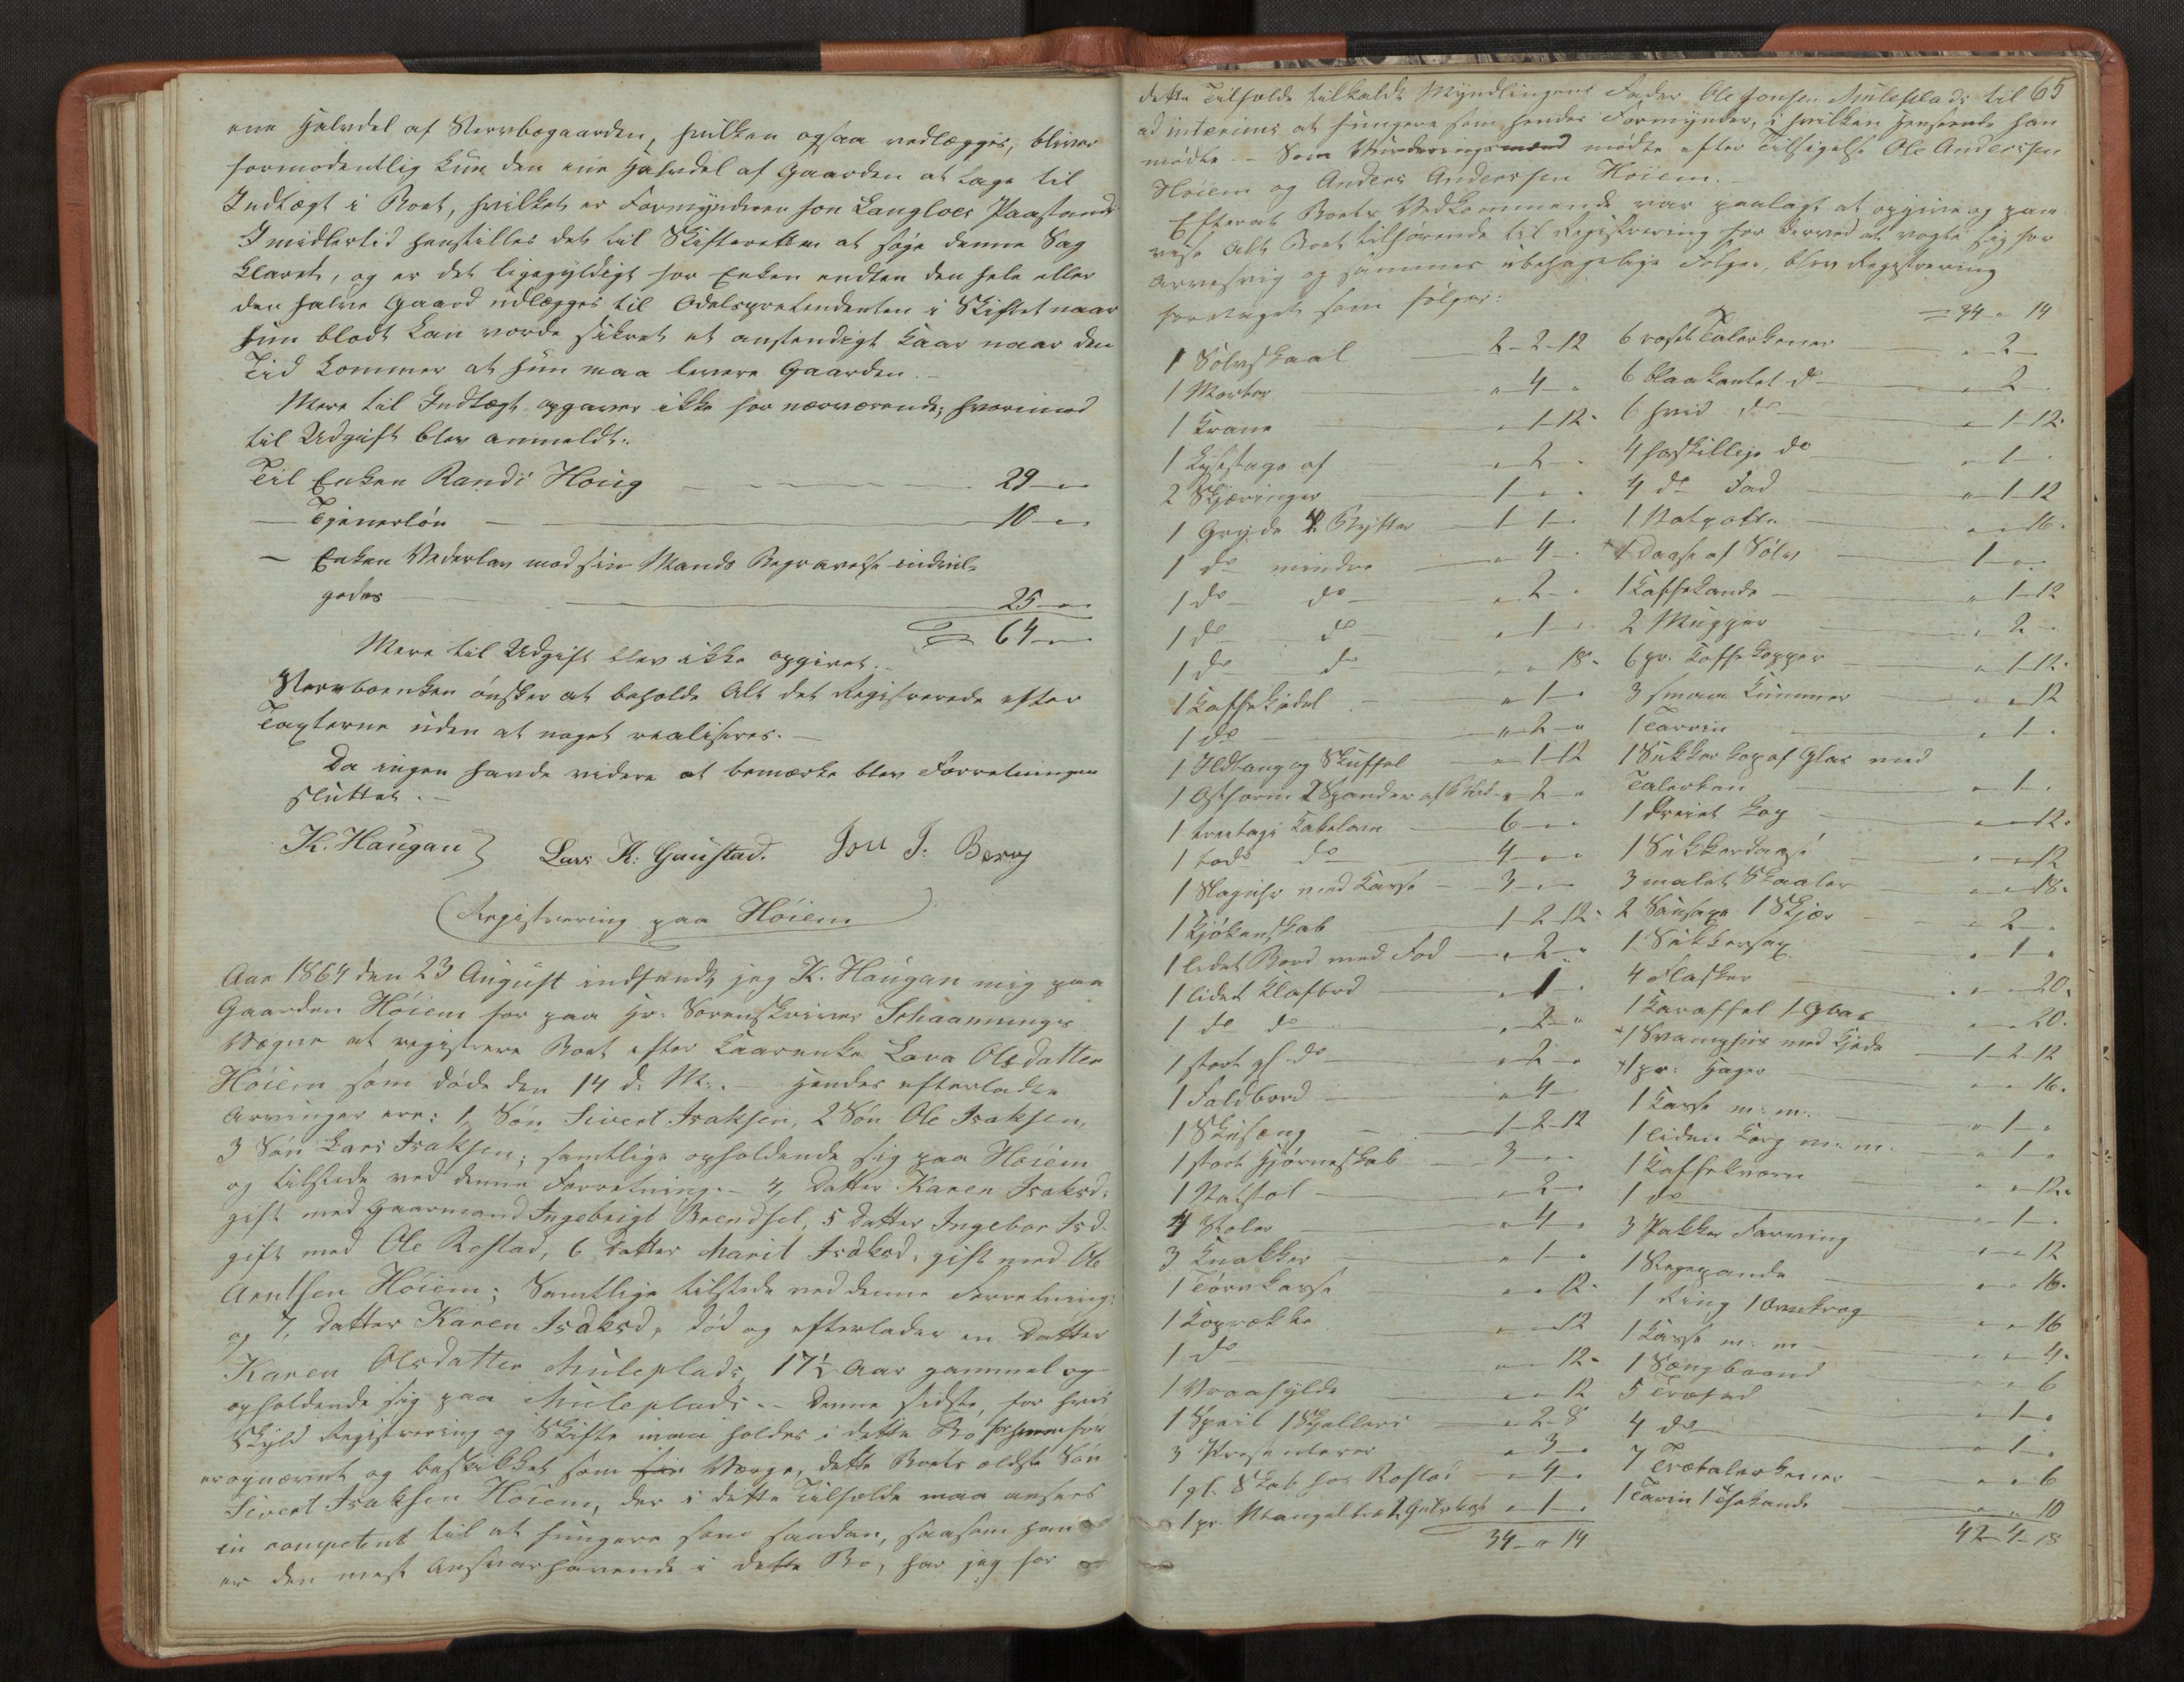 ene Halvdel af Stervbogaarden, hvilken ogsaa vedlægges, bliver
formodentlig kun den ene Halvdel af Gaarden at tage til
Indtægt i Boet, hvilket er Formynderen Paastand
Imidlertid henstilles det til Skifteretten at søge denne Sag
klaret, og er det ligegyldigt for Enken endten den hele eller
den halve Gaard udlægges til Odelsprætendenten i Skiftet naar
hun blodt kan vorde sikret et anstendigt Kaar naar den
Tid kommer at hun maa levere Gaarden.
Mere til Indtægt opgaves ikke for nærværende; hvorimod
til Udgift blev anmeldt:
Til Enken Randi Houg 29 – "
— Tjenerløn 10 – "
— Enken Vederlav med sin Mands Begravelse indvil-
gedes 25 – "
= 64 – "
Mere til Udgift blev ikke opgivet.
Stervboenken ønsker at beholde Alt det Registrerede efter
Taxterne uden at noget realiseres.
Da ingen havde videre at bemærke blev Forretningen
sluttet.
K. Haugan Lars K. Gaustad. Jon J. Berg
Registrering paa Höiem
Aar 1864 den 23 August indfandt jeg K. Haugan mig paa
Gaarden Höiem for paa Hr. Sorenskriver Schaannings
Vegne at registrere Boet efter Kaarenke Lava Olsdatter
Höiem som døde den 14 d. M. Hendes efterladte
Arvinger ere: 1, Søn Sivert Isaksen, 2 Søn Ole Isaksen,
3 Søn Lars Isaksen; samtlige opholdende sig paa Höiem
og tilstede ved denne Forretning. – 4, Datter Karen Isaksd.
gift med Gaarmand Ingebrigt Brendsel, 5 Datter Ingebor Isd.
gift med Ole Rostad, 6 Datter Marit Isaksd. gift med Ole
Arntsen Höiem; Samtlige tilstede ved denne Forretning;
og 7, Datter Karen Isaksd, død og efterlader en Datter
Karen Olsdatter Muleplads, 17½ Aar gammel og
opholdende sig paa Muleplads. – Denne sidste, for hvis
Skyld Registrering og Skifte maa holdes i dette Bo
er opnævnt og beskikket som Værge, dette Boets ældste Søn
Sivert Isaksen Höiem, der i dette Tilfælde maa ansees
in competent til at fungere som saadan, saasom han
er den mest Ansvarhavende i dette Bo, har jeg for
65
dette Tilfælde tilkaldt Myndlingens Fader Ole Jonsen Muleplads til
ad interims at fungere som hendes Formynder, i hvilken Henseende han
mødte. – Som Vurderingsmænd mødte efter Tilsigelse Ole Anderssen
Höiem og Anders Anderssen Höiem.
Efterat Boets Vedkommende var paalagt at opgive og paa-
vise Alt Boet tilhørende til Registrering for derved at vogte sig for
Arvesvig og sammes ubehagelige Følger, blev Registrering
foretaget som følger:
1 Sølvskaal 2-2-12
1 Morter " 4 "
1 Krane " 1-12
1 Lysestage af " 2 "
2 Skjæringer 1 " "
1 Gryde 1 1 "
1 do mindre " 4 "
1 do do " 2 "
1 do do " 1 "
1 do do " " 18
1 Kaffekjedel " 1 "
1 do " 2 "
1 Ildtang og Skuffel " 1-12
1 Ostform 2 Spander af Blik " 2 "
1 treetages Kakelovn 6 " "
1 tods do 4 " "
1 Slaguhr med Kasse 3 " "
1 Kjøkenskab 1-2-12
1 lidet Bord med Fod " 2 "
1 lidet Klafbord " 1 "
1 do do " 2 "
1 stort gl. do " 2 "
1 Faldbord " 4 "
1 Skusæng 1-2-12
1 stort Hjørneskab 3 " "
1 Natstol " 2 "
4 Stoler " 4 "
3 Knakker " 1 "
1 Tørvkasse " " 12
1 Koprække " " 12
1 do " " 12
1 Vraahylde " " 12
1 Speil 1 " 2-8
3 Presenterer " 3 "
1 gl. Skab hos Rostad " 4 "
1 pr. Mangeltræ " 1 "
34 " 14
= 34 " 14
6 roset Talerkener " 2 "
6 blaakantet do " 2 "
6 hvid do " 1-12
4 forskillige do " 1 "
4 do Fad " 1-12
1 Natpotte " " 16
+ 1 Daase af Sölv 1 " "
1 Kaffekande " 1-12
2 Mugger " 2 "
6 pr. Kaffekopper " 1-12
3 smaa Kummer " " 12
1 Tarrin " 1 "
1 Sukkerkop af Glas med
Talerken " 1 "
1 dreiet Kop " " 12
1 Sukkerdaase " " 12
3 malet Skaaler " " 18
2 Sausaxe 1 Skjær " 2 "
1 Sukkersax " 1 "
4 Flasker " " 20
1 Karaffel 1 Glas " " 20
+ 1 Svamphus med Kjede 1-2-12
+ 1 pr. Hager " " 16
1 Kasse m. m. " 1 "
1 liden Korg m. m. " 1 "
1 Kaffekværn " " 12
1 do " 1 "
3 Pakker Farving " " 12
1 Stegepande " " 16
1 Ring 1 Ovnskrog " " 16
1 Kasse m. m " " 4
1 Sengbaand " " 6
5 Træfad " 1 "
4 do " 1 "
7 Trætalerkener " " 6
1 Tarin 1 Thekande " " 10
42-4-18